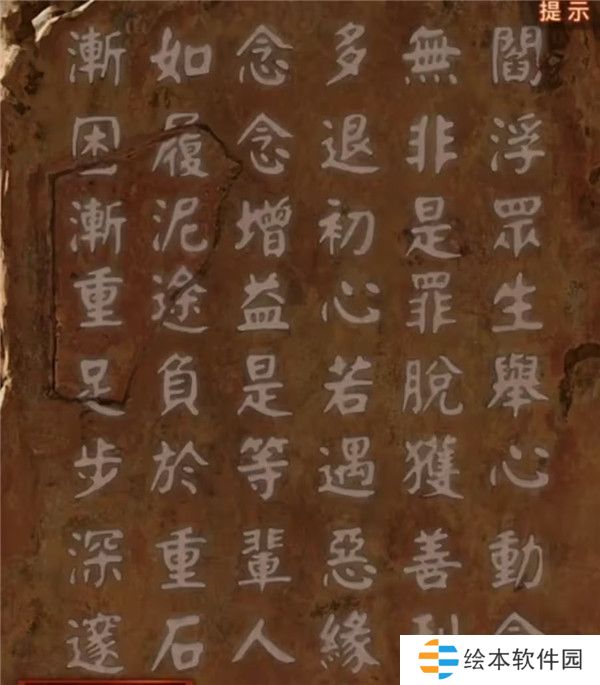 提示
閻浮眾生舉心動念
無非是罪脫獲善利
多退初心若遇惡緣
念念增益是等輩人
如履泥途負於重石
漸困漸重足步深邃
绘本软件园